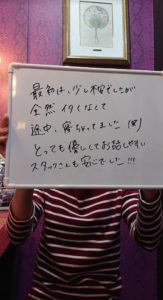 最初は、少し不安でしたが
全然イタくなくて
途中、寝ちゃってました(笑)
とっても優しくてお話しやすい
スタッフさんも安心でした!!!